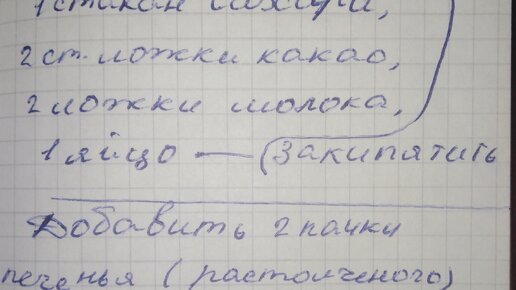 1 стакан сахара,
2 ст. ложки какао,
2 ложки молока,
1 яйцо — (закипятить
Добавить 2 пачки
печенья (растолченого)